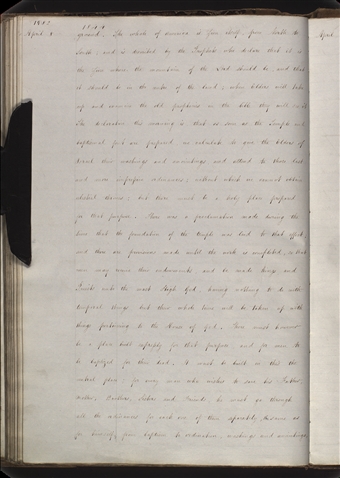 1844
April 8 ground. The whole of America is Zion itself from North to
South, and is described by the Prophets, who declare that it is
the Zion where the mountain of the Lord should be, and that
it should be in the center of the land; when Elders will take
up and examine the old prophecies in the bible they will see it
The declaration this morning is, that as soon as the Temple and
baptismal font are prepared, we calculate to give the Elders of
Israel their washings and anointings and attend to those last
and more impressive ordinances, without which we cannot obtain
celestial thrones; but there must be a holy place prepared
for that purpose. There was a proclamation made during the
time that the foundation of the Temple was laid to that effect
and there are provisions made until the work is completed, so that
men may receive their endowments and be made kings and
Priests unto the most High God, having nothing to do with
temporal things but their whole time will be taken up with
things pertaining to the House of God. There must however
be a place built expressly for that purpose, and for men to
be baptized for their dead. It must be built in this the
central place; for every man who wishes to save his Father,
Mother, Brothers, Sisters and Friends, he must go through
all the ordinances for each one of them separately the same as
for himself, from baptism to ordination, washings and anointings
April